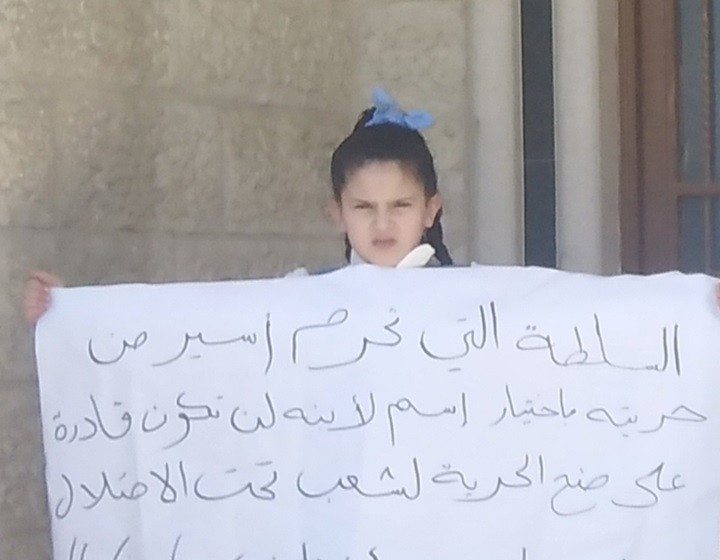 السلطة التي تحرم أسير من
حريته باختيار إسم لأبنه لن تكون قادرة
على صنع الحرية لشعب تحت الاحتلال